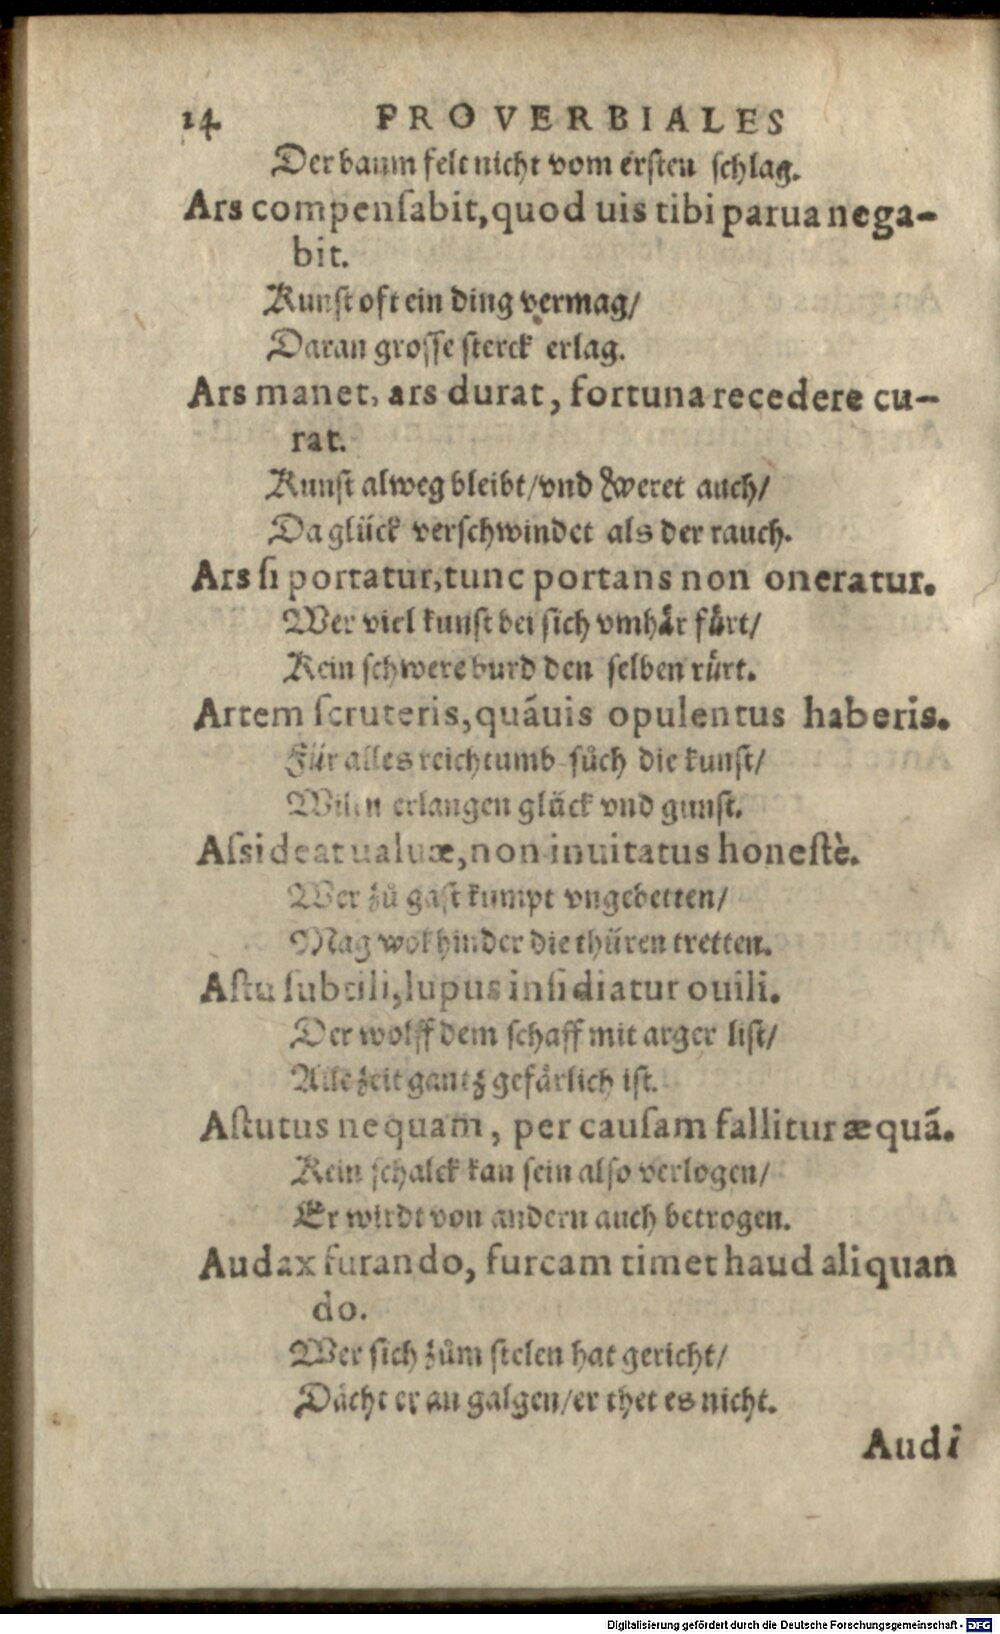 14 PROVERBIALES
Der baum felt nicht vom ersten schlag.
Ars compenſabit, quod uis tibi parua nega-
bit.
Kunst oft ein ding vermag/
Daran grosse sterck erlag.
Ars manet, ars durat, fortuna recedere cu-
rat.
Kunst alweg bleibt/vnd weret auch/
Da glück verschwindet als der rauch.
Ars ſi portatur, tunc portans non oneratur.
Wer viel kunst bei sich vmhår fůrt/
Kein schwere burd den selben rürt.
Artem ſcruteris, quãuis opulentus haberis.
Für alles reichtumb sůch die kunst/
erlangen glück vnd gunst.
Aſsideat ualuæ, non inuitatus honeſtè.
Wer zů gast kumpt vngebetten/
Mag wol hinder die thüren tretten.
Aſtu ſubtili, lupus inſidiatur ouili.
Der wolff dem schaff mit arger list/
Alle zeit gantz gefärlich ist.
Aſtutus nequam, per cauſam fallitur æquã.
Kein schalck kan sein also verlogen/
Er wirdt von andern auch betrogen.
Audax furando, furcam timet haud aliquan
do.
Wer sich zům stelen hat gericht/
Dächt er an galgen/er thet es nicht.
Audi
Digitalisierung gefördert durch die Deutsche Forschungsgemeinschaft - DFG